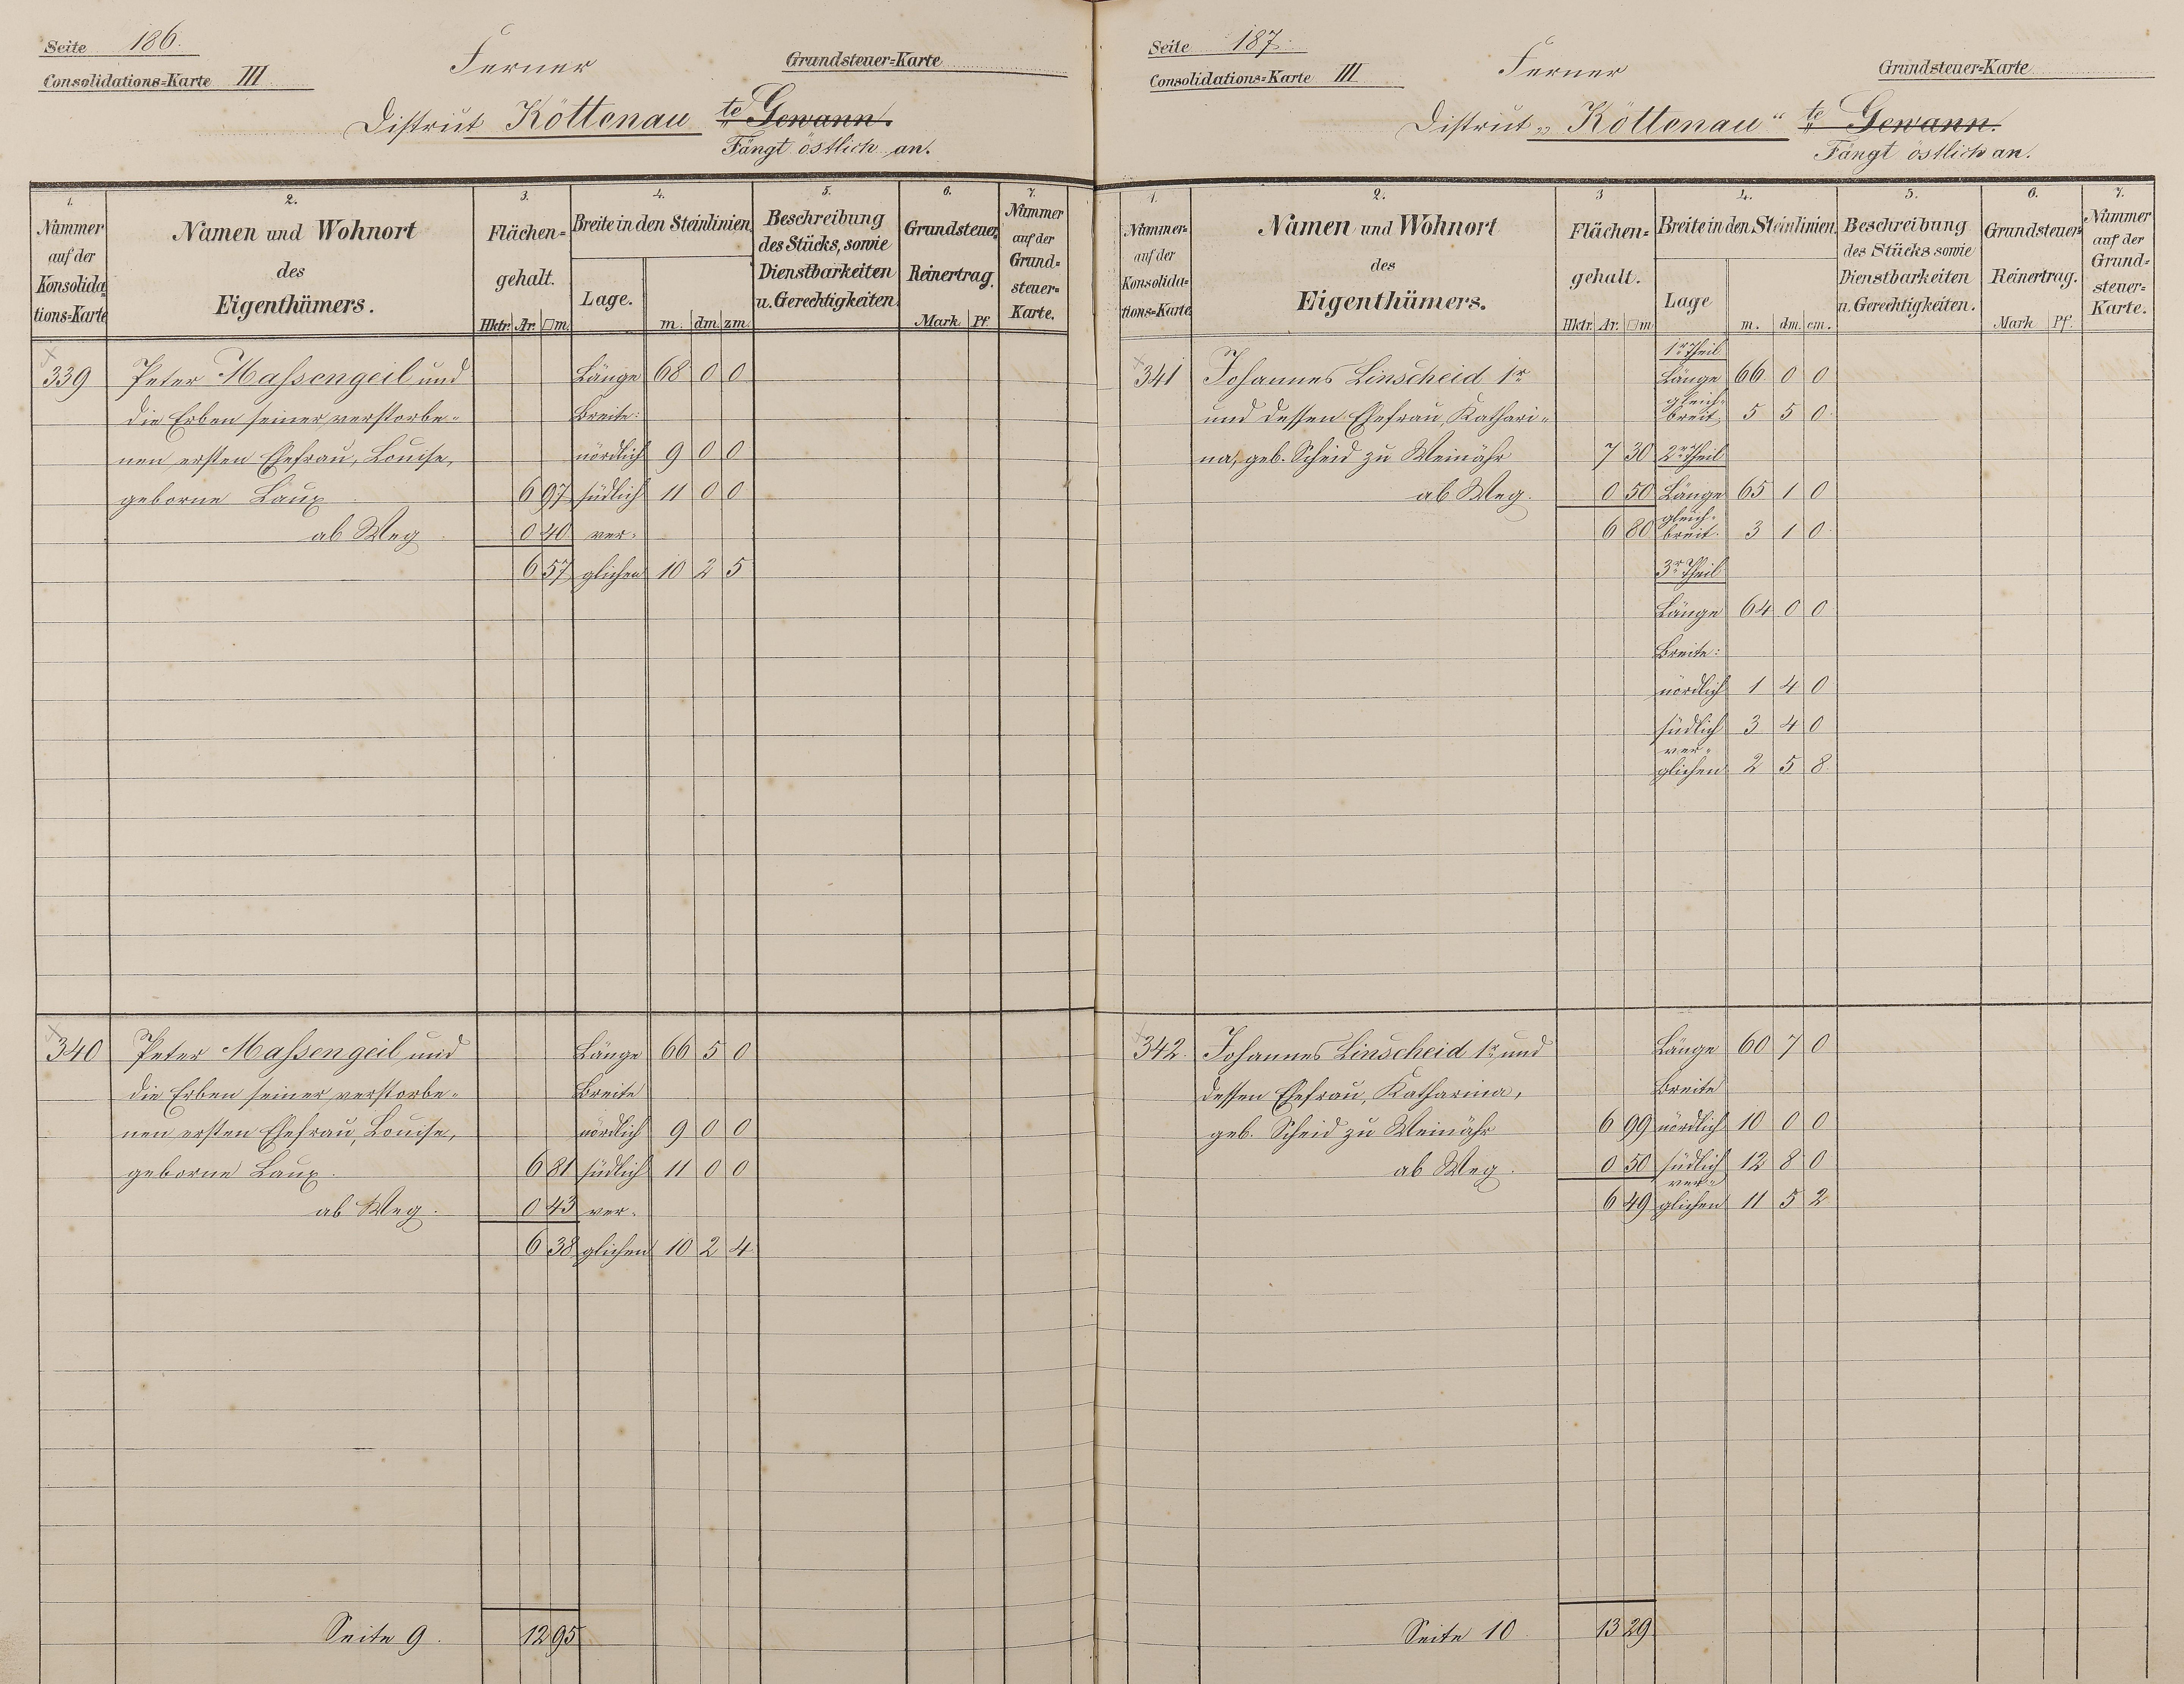 Seite 186.
Consolidations=Karte III
Ferner
Grundsteuer=Karte
Distrikt Köttenau te Gewann.
Fängt östlich an.
1. 2. 3. 4. 5. 6. 7.
Nummer auf der Konsolida=tions=Karte
Namen und Wohnort
des
Eigenthümers.
Flächen=
gehalt.
Hktr. Ar. □m.
Breite in den Steinlinien.
Lage.
m. dm. zm.
Beschreibung
des Stücks, sowie
Dienstbarkeiten
u. Gerechtigkeiten.
Grundsteuer
Reinertrag.
Mark. Pf.
Nummer
auf der
Grund=
steuer=
Karte.
339 Peter Maßengeil und Länge 68 0 0
die Erben seiner verstorbe= Breite:
nen ersten Ehefrau, Louise, nördlich 9 0 0
geborne Laux 6 97 südlich 11 0 0
ab Weg 0 40 ver=
6 57 glichen 10 2 5
340 Peter Maßengeil und Länge 66 5 0
die Erben seiner verstorbe= Breite
nen ersten Ehefrau, Louise, nördlich 9 0 0
geborne Laux. 6 81 südlich 11 0 0
ab Weg. 0 43 ver=
6 38 glichen 10 2 4
Seite 9. 12 95
Seite 187.
Consolidations=Karte III
Ferner
Grundsteuer=Karte
Distrikt „Köttenau“ te Gewann.
Fängt östlich an.
1. 2. 3 4. 5. 6. 7.
Nummer=
auf der
Konsolida=
tions=Karte
Namen und Wohnort
des
Eigenthümers.
Flächen=
gehalt.
Hktr. Ar. □m
Breite in den Steinlinien.
Lage
m. dm. cm.
Beschreibung
des Stücks sowie
Dienstbarkeiten
u. Gerechtigkeiten.
Grundsteuer=
Reinertrag.
Mark Pf.
Nummer
auf der
Grund=
steuer=
Karte.
1r Theil
341 Johannes Linscheid 1r Länge 66 0 0
gleich=
und dessen Ehefrau, Kathari= breit 5 5 0
na, geb. Scheid zu Weinähr 7 30 2r Theil
ab Weg. 0 50 Länge 65 1 0
gleich=
6 80 breit. 3 1 0
3r Theil
Länge 64 0 0
Breite:
nördlich 1 4 0
südlich 3 4 0
ver=
glichen 2 5 8
342. Johannes Linscheid 1r und Länge 60 7 0
dessen Ehefrau, Katharina, Breite
geb. Scheid zu Weinähr 6 99 nördlich 10 0 0
ab Weg. 0 50 südlich 12 8 0
ver=
6 49 glichen 11 5 2
Seite 10. 13 29